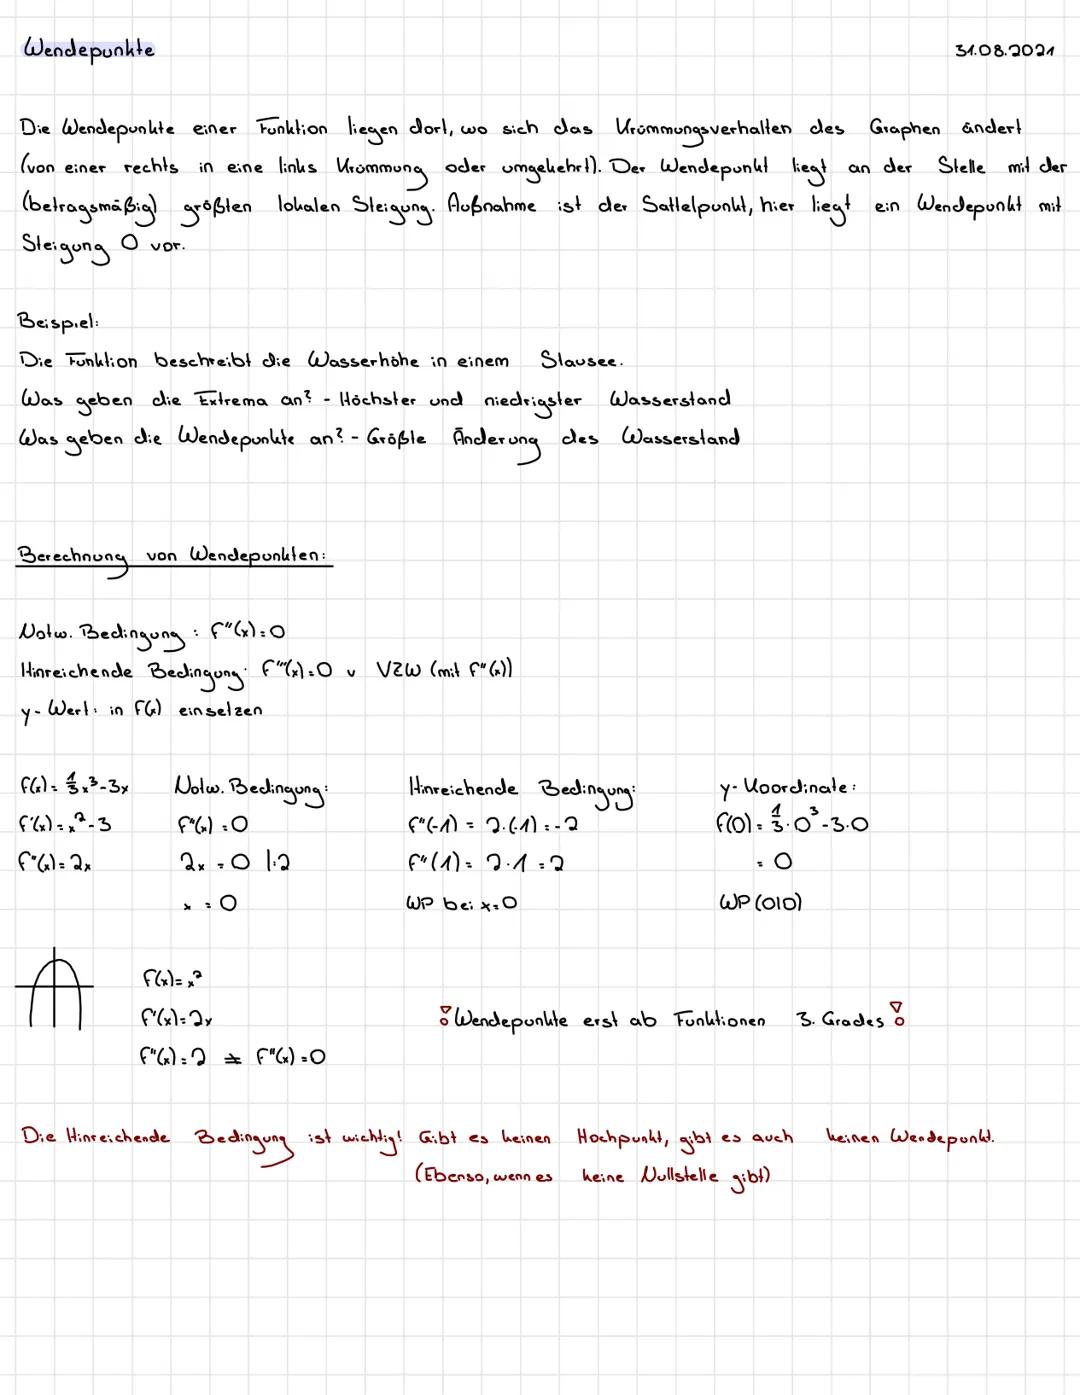 Wendepunkte 31.08.2021
Die Wendepunkte einer Funktion liegen dort, wo sich das Krümmungsverhalten des Graphen ändert
(von einer rechts in eine links Krümmung oder umgekehrt). Der Wendepunkt liegt an der Stelle mit der
(betragsmäßig) größten lokalen Steigung. Außnahme ist der Sattelpunkt, hier liegt ein Wendepunkt mit
Steigung 0 vor.
Beispiel:
Die Funktion beschreibt die Wasserhöhe in einem Stausee.
Was geben die Extrema an? - Höchster und niedrigster Wasserstand
Was geben die Wendepunkte an? - Größte Änderung des Wasserstand
Berechnung von Wendepunkten:
Notw. Bedingung : f''(x)=0
Hinreichende Bedingung: f'''(x)=0 v VZW (mit f''(x))
y-Wert: in f(x) einsetzen
f(x)= 1/3x³-3x Notw. Bedingung: Hinreichende Bedingung: y-Koordinate:
f'(x)=x²-3 f''(x)=0 f''(-1) = 2·(-1)=-2 f(0)=1/3·0³-3·0
f''(x)=2x 2x = 0 |:2 f''(1)= 2·1=2 = 0
x = 0 WP bei x=0 WP(0|0)
f(x)=x²
f'(x)=2x ! Wendepunkte erst ab Funktionen 3. Grades !
f''(x)=2 ≠ f''(x)=0
Die Hinreichende Bedingung ist wichtig! Gibt es keinen Hochpunkt, gibt es auch keinen Wendepunkt.
(Ebenso, wenn es keine Nullstelle gibt)